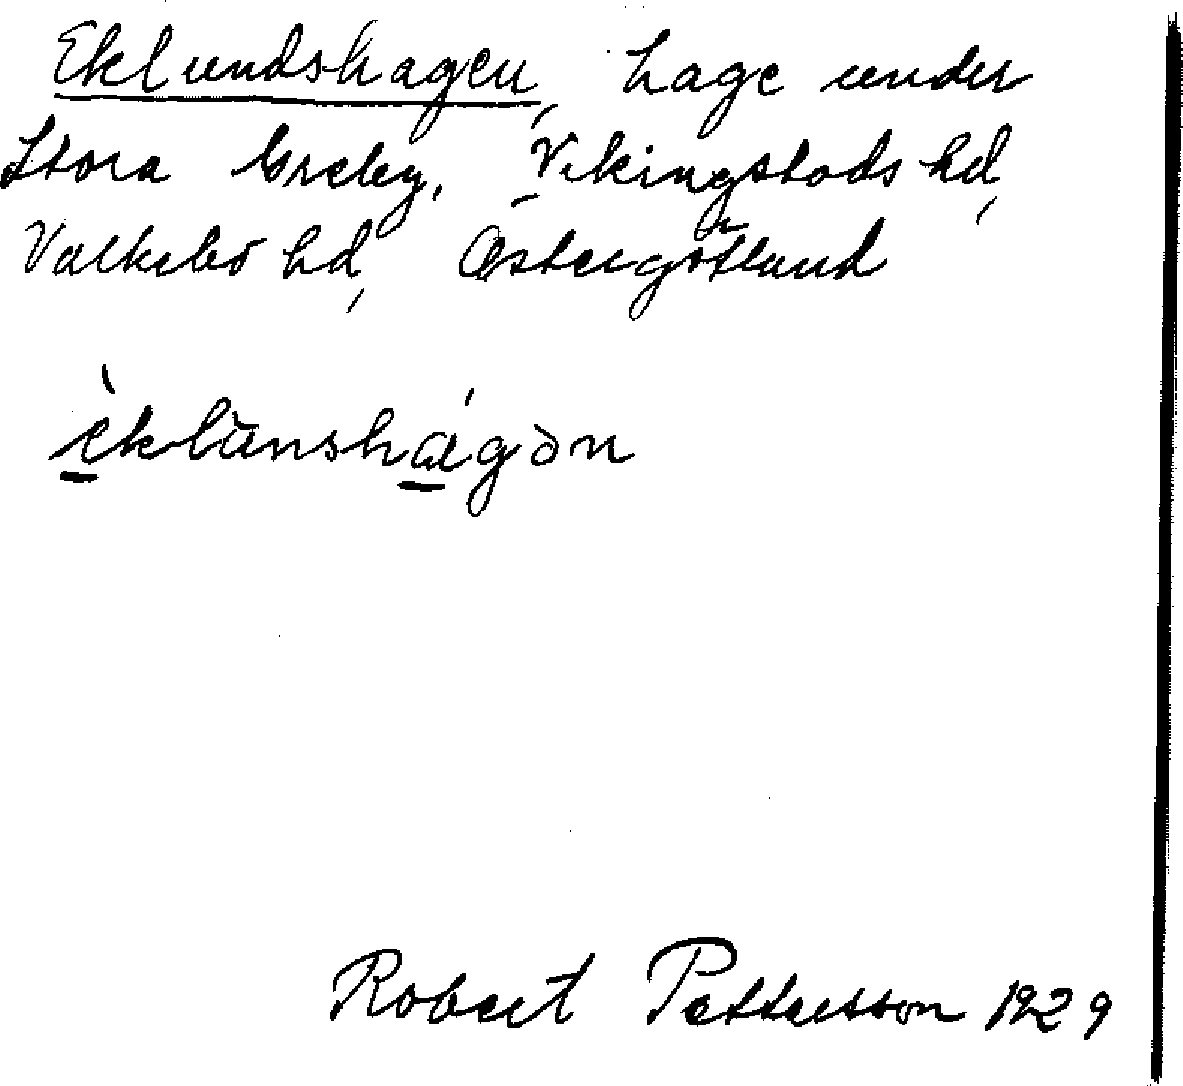 Eklundshagen, hage under
Stora Greby, Vikingstads hd,
Valkebo hd, Östergötland
èklùnshágən
Robert Pettersson 1929